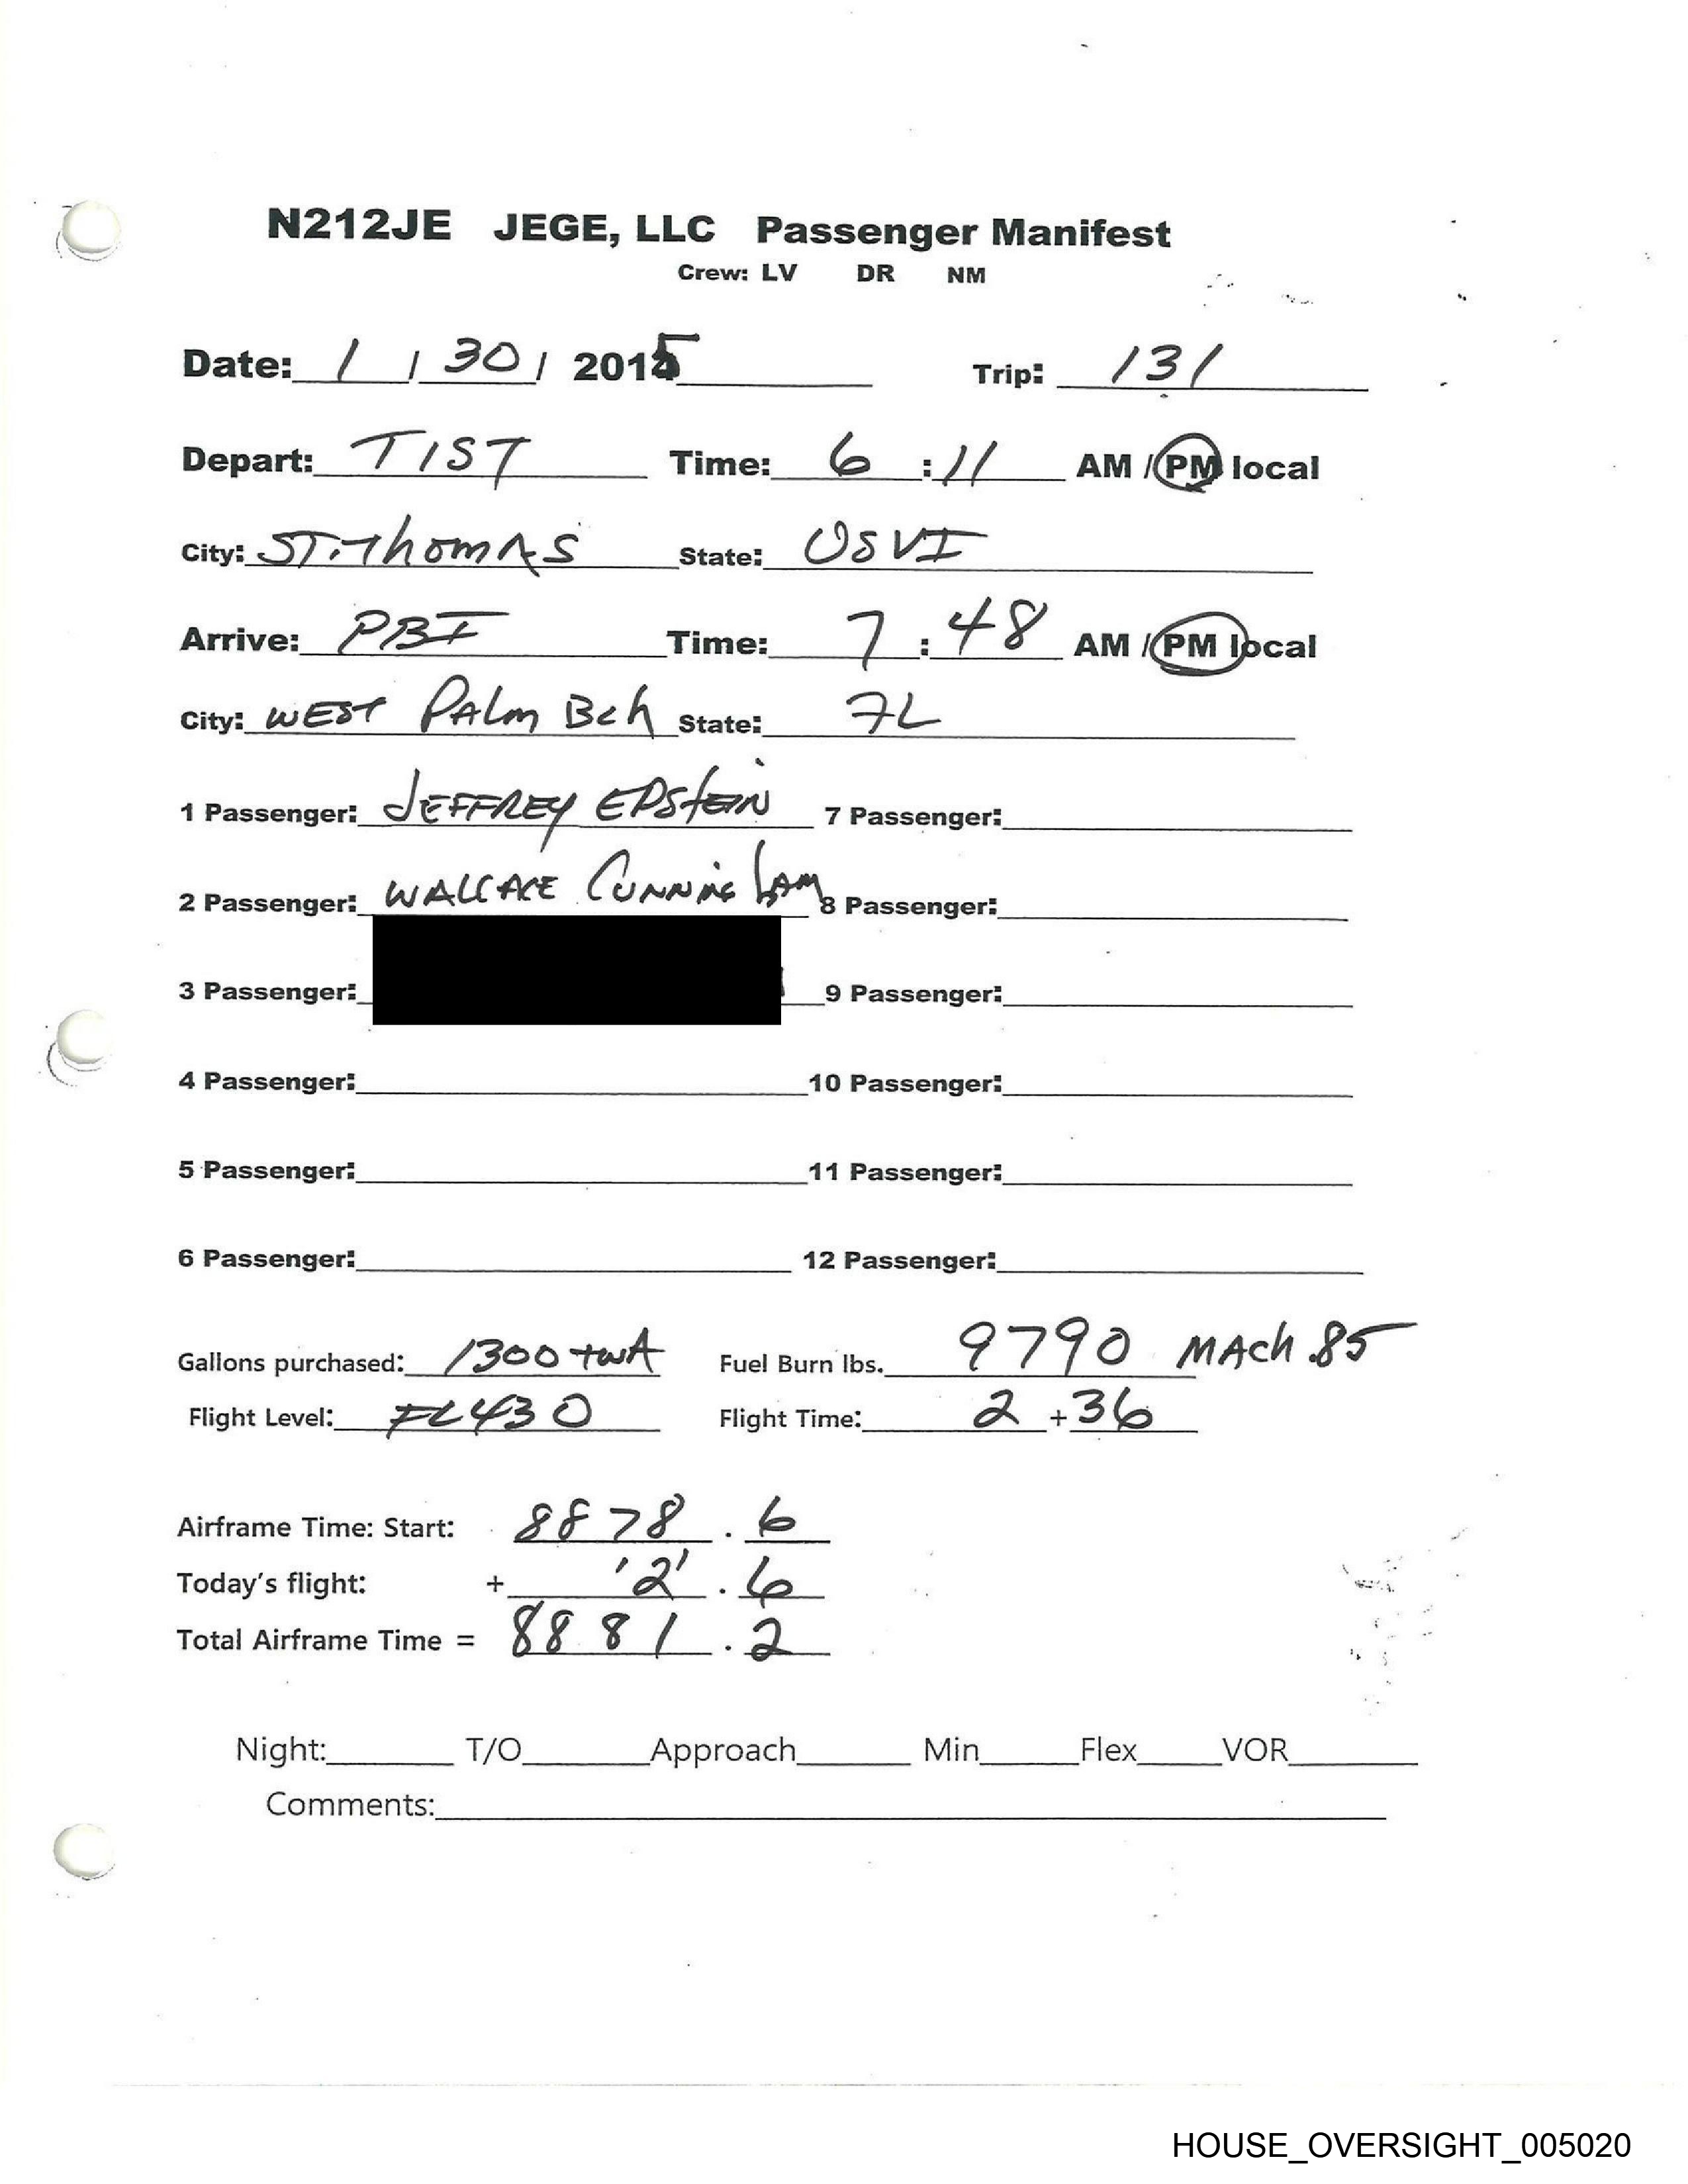 N212JE JEGE, LLC Passenger Manifest
Crew: LV DR NM
Date: 1 / 30 / 2015 Trip: 131
Depart: TIST Time: 6 : 11 AM / PM local
City: ST. Thomas State: USVI
Arrive: PBI Time: 7 : 48 AM / PM local
City: WEST PALM Bch State: FL
1 Passenger: JEFFREY EPSTEIN 7 Passenger:
2 Passenger: WALLACE CUNNINGHAM 8 Passenger:
3 Passenger: 9 Passenger:
4 Passenger: 10 Passenger:
5 Passenger: 11 Passenger:
6 Passenger: 12 Passenger:
Gallons purchased: 1300 Fuel Burn lbs. 9790 MAch .85
Flight Level: FL430 Flight Time: 2 + 36
Airframe Time: Start: 8878 . 6
Today's flight: + 2 . 6
Total Airframe Time = 8881 . 2
Night: T/O Approach Min Flex VOR
Comments:
HOUSE_OVERSIGHT_005020